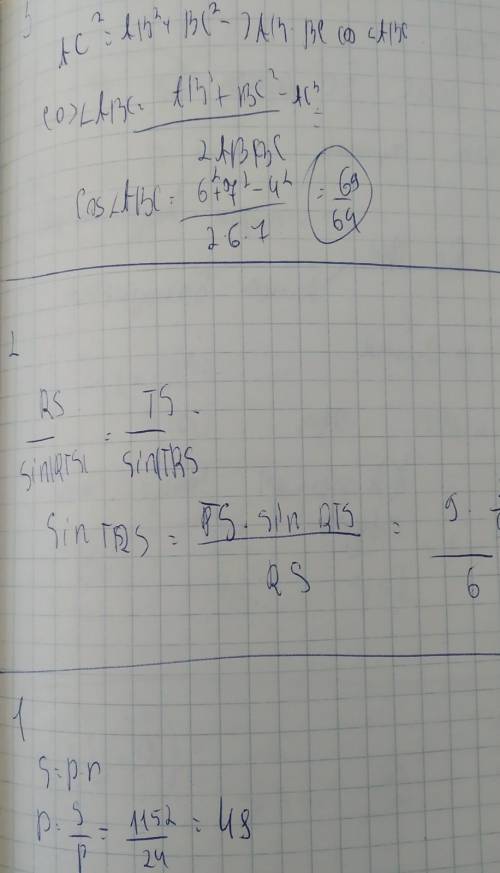 3
AC² = AB² + BC² - 2AB · BC cos ∠ABC
cos∠ABC = AB² + BC² - AC² =
2AB·BC
cos∠ABC = 6² + 7² - 4² = 69
2·6·7 64
2
RS = TS
sinRTS sinTRS
sin TRS = TS · sin RTS = 5 ·
RS 6
1
S = p·r
P = S = 1152 = 48
p 24